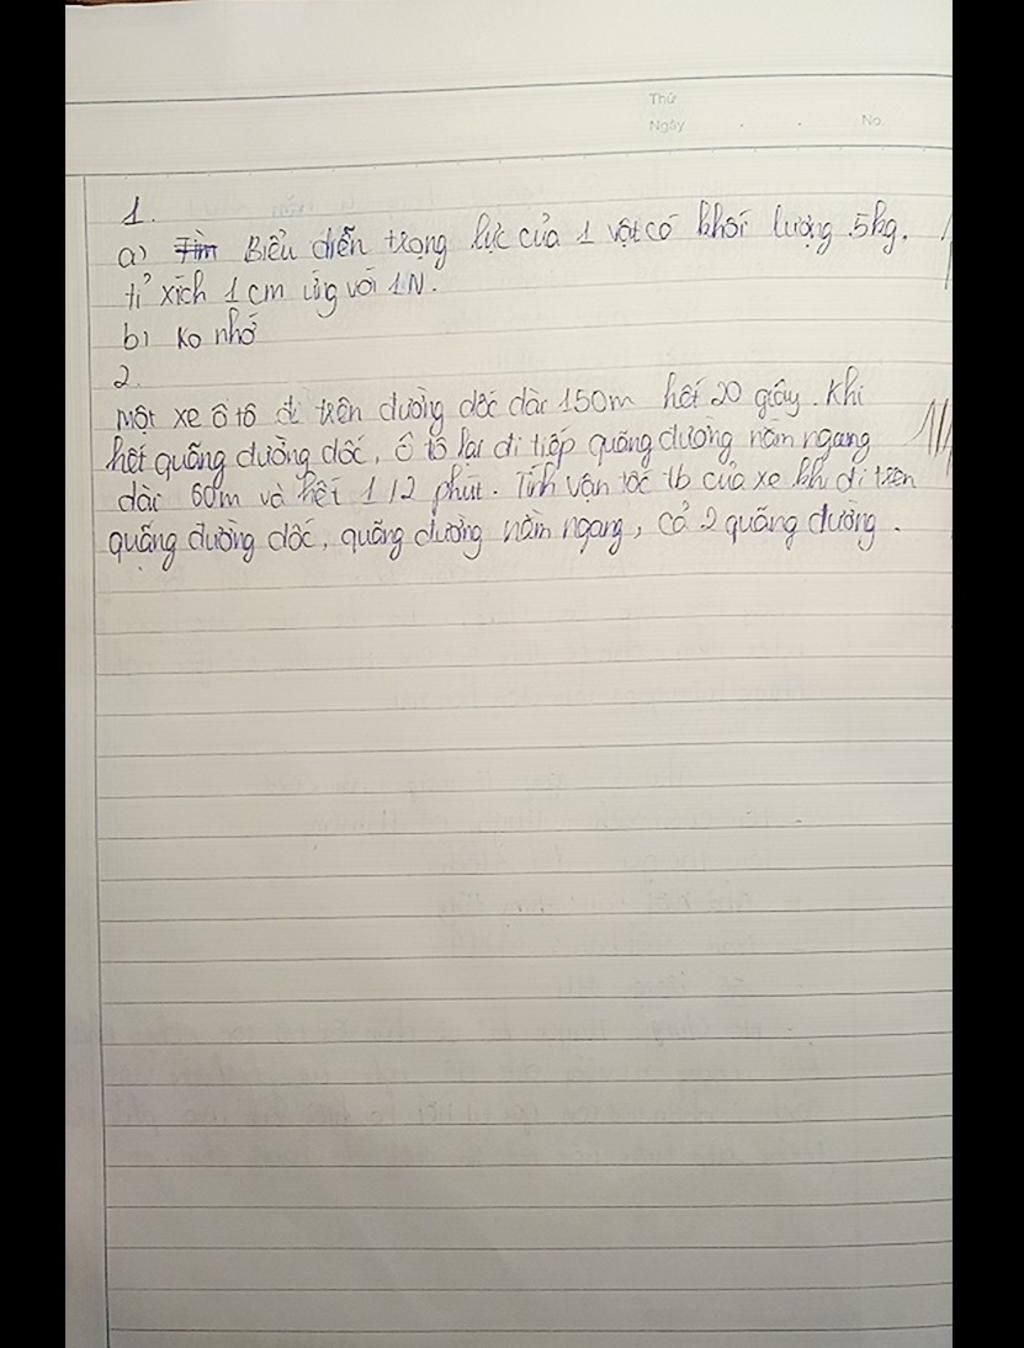 Thứ
Ngày . . No.
1.
a) Tìm Biểu diễn trọng lực của 1 vật có khối lượng 5kg.
tỉ xích 1cm ứg với 1N.
b) Ko nhớ
2.
Một xe ô tô đi trên đường dốc dài 150m hết 20 giây. Khi
hết quãng đường dốc, ô tô lại đi tiếp quãng đường nằm ngang
dài 60m và hết 1/2 phút. Tính vận tốc tb của xe khi đi trên
quãng đường dốc, quãng đường nằm ngang, cả 2 quãng đường.